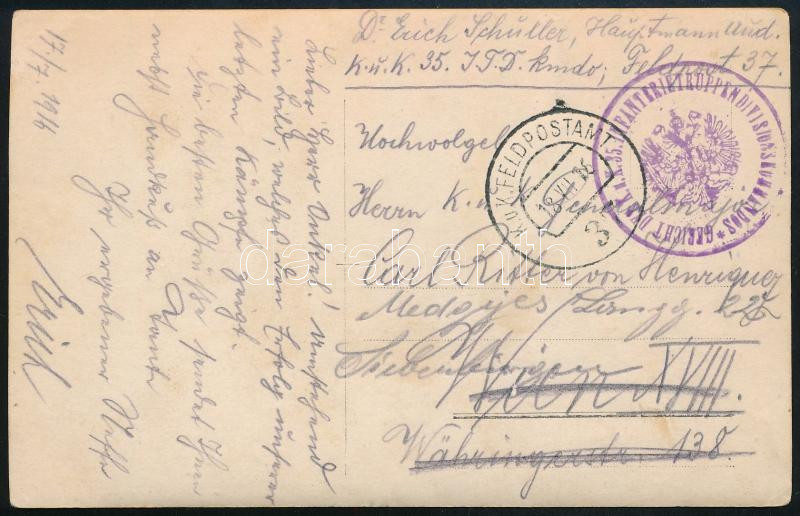 Dr Erich Schuller, Hauptmann Aud.
K.u.K. 35. I.T.D. kmdo, Feldpost 37.
Hochwolgeb
Herrn K. u. K. Generalmajor
Carl Ritter von Henriquez
Medgyes Langg. 27
Siebenbürgen
Wien XVIII.
Währingerstr. 138.
K.u.K. FELDPOSTAMT
18.VII.16
3
GERICHT DES K.u.K. 35. INFANTERIETRUPPENDIVISIONSKOMMANDOS
17/7. 1916
Lieber Herr Onkel! Umstehend
ein Bild, welches den Erfolg unserer
letzten Kämpfe zeigt.
Die besten Grüße sendet Ihnen
nebst Handkuß an Tante
Ihr ergebener Neffe
Erich
darabanth